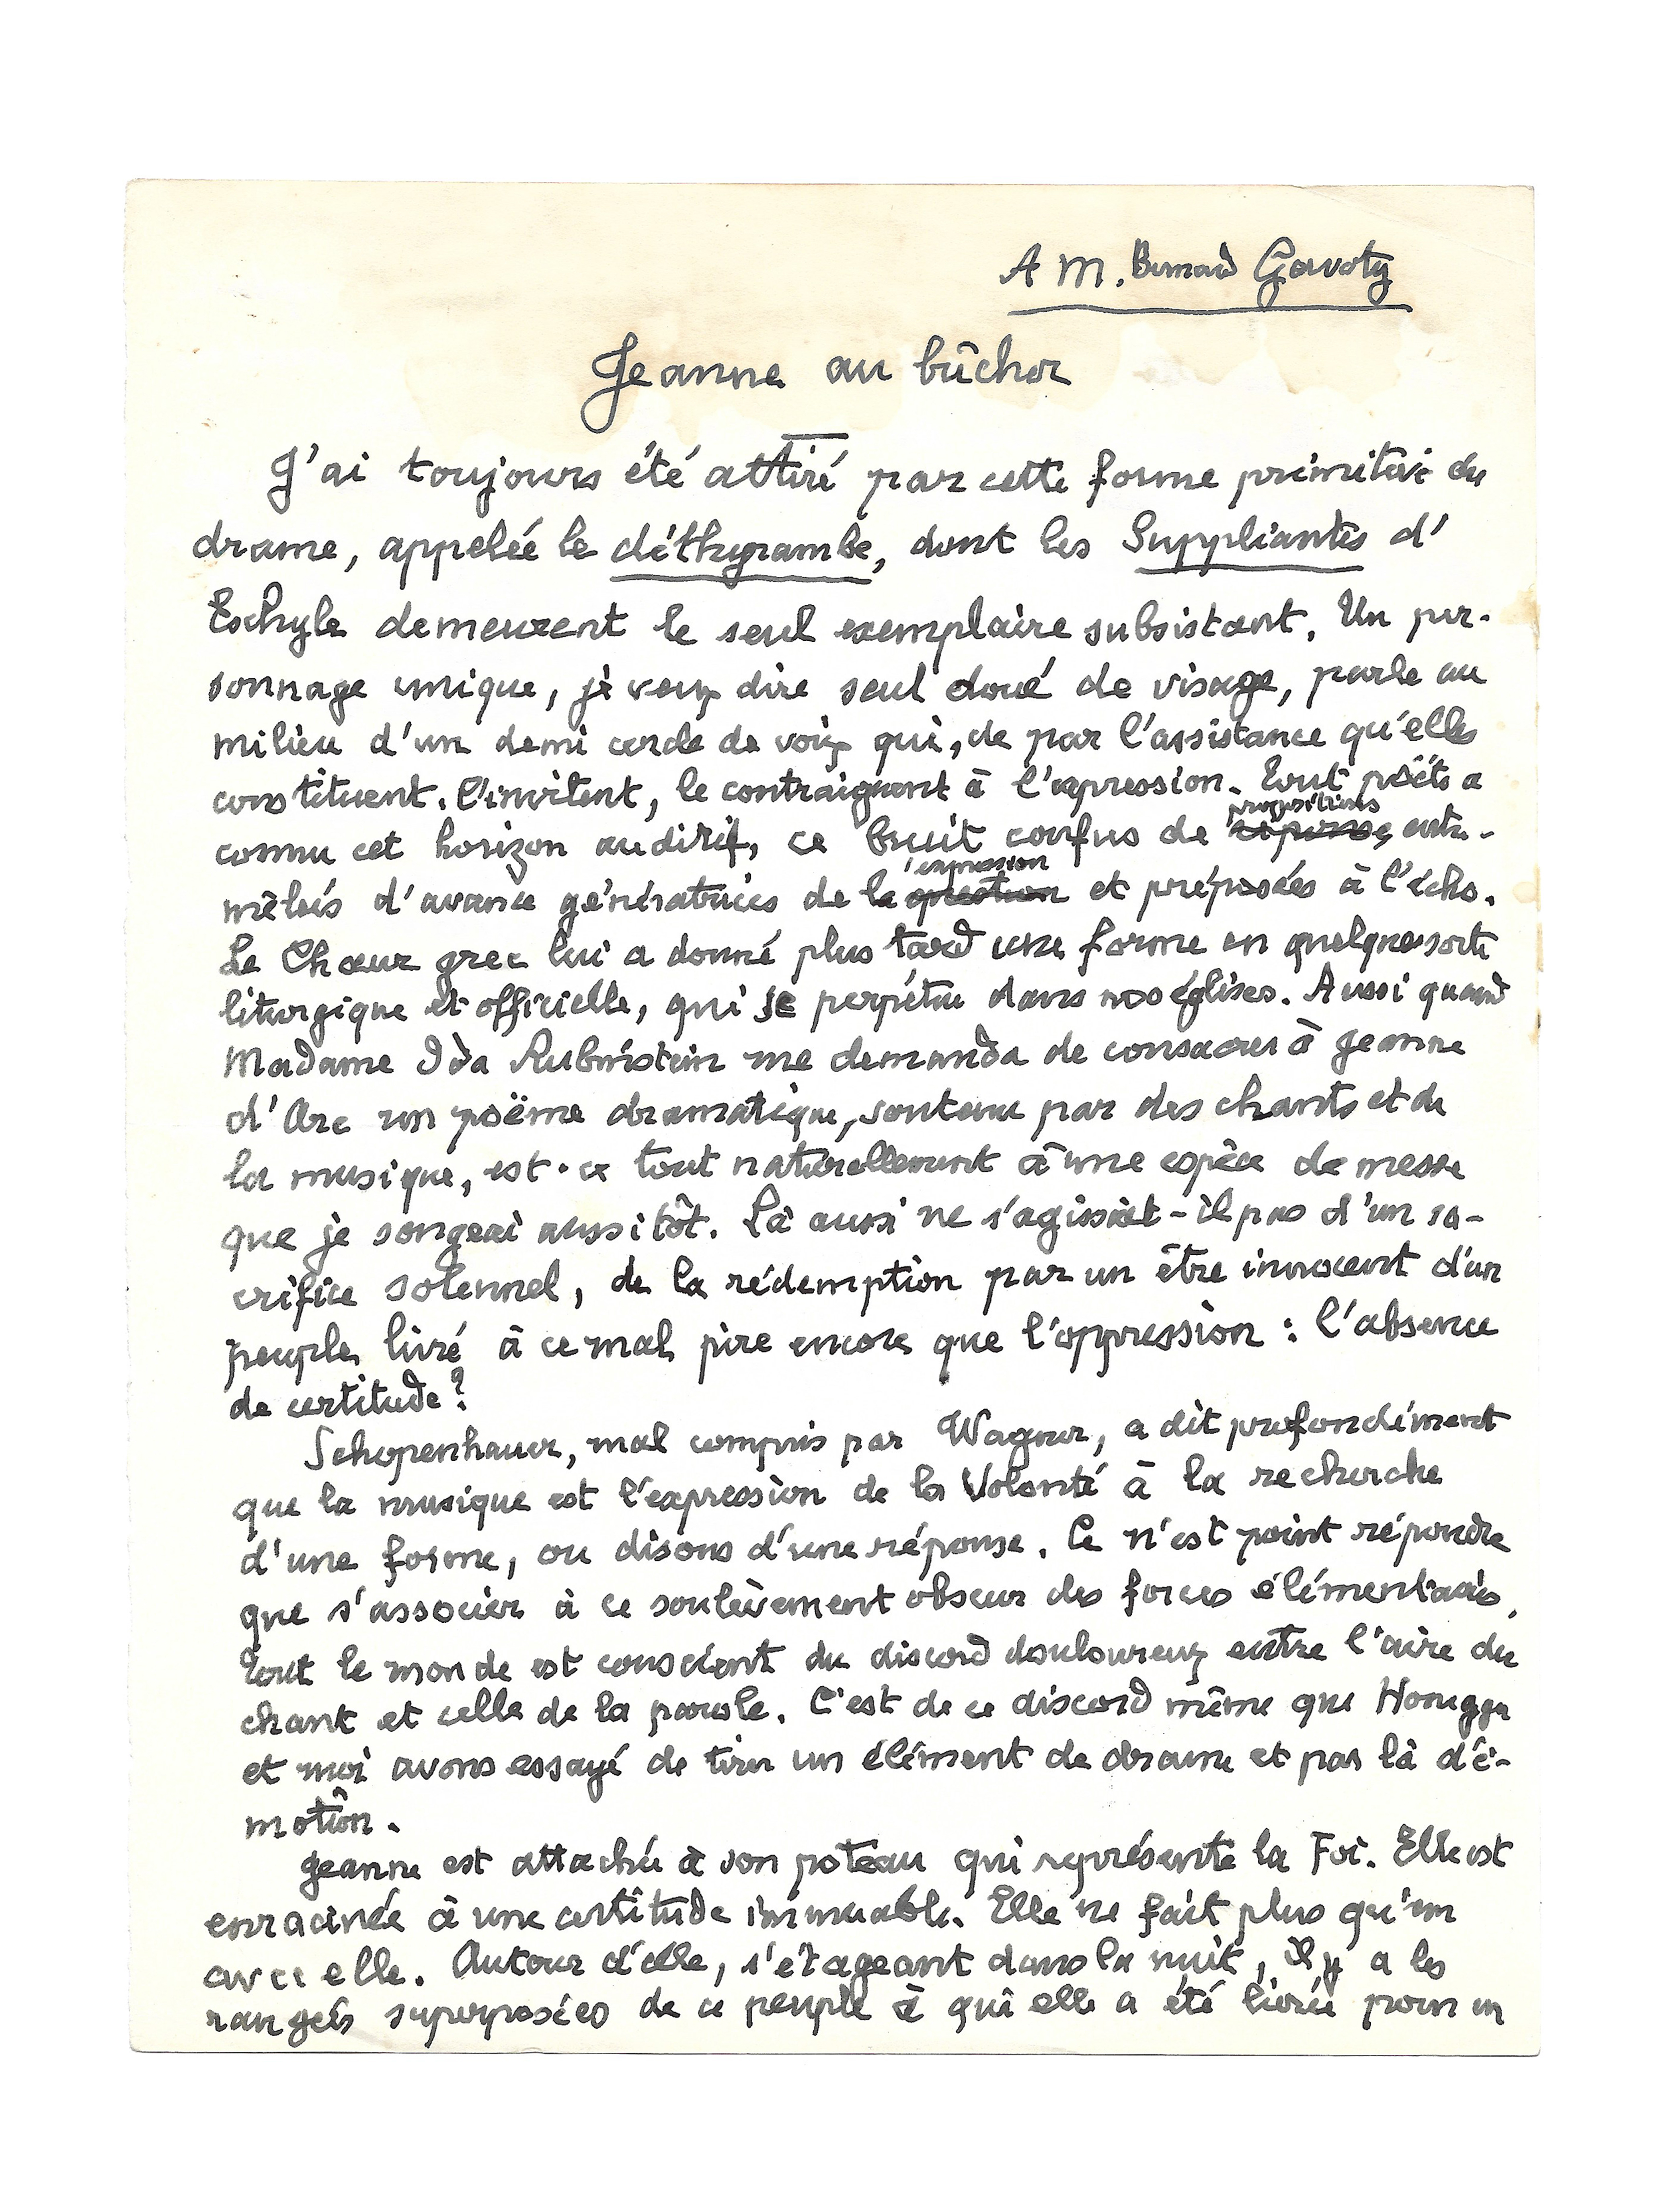 A M. Bernard Gavoty
Jeanne au bûcher
J'ai toujours été attiré par cette forme primitive du
drame, appelée le dithyrambe, dont les Suppliantes d'
Eschyle demeurent le seul exemplaire subsistant. Un per-
sonnage unique, je veux dire seul doué de visage, parle au
milieu d'un demi cercle de voix qui, de par l'assistance qu'elles
constituent, l'invitent, le contraignent à l'expression. Tout poëte a
propositions
connu cet horizon auditif, ce bruit confus de réponses entre-
l'expression
mêlées d'avance génératrices de la question et préposées à l'écho.
Le Chœur grec lui a donné plus tard une forme en quelque sorte
liturgique et officielle, qui se perpétue dans nos églises. Aussi quand
Madame Ida Rubinstein me demanda de consacrer à Jeanne
d'Arc un poëme dramatique, soutenu par des chants et de
la musique, est-ce tout naturellement à une espèce de messe
que je songeai aussitôt. Là aussi ne s'agissait-il pas d'un sa-
crifice solennel, de la rédemption par un être innocent d'un
peuple livré à ce mal pire encore que l'oppression : l'absence
de certitude ?
Schopenhauer, mal compris par Wagner, a dit profondément
que la musique est l'expression de la Volonté à la recherche
d'une forme, ou disons d'une réponse. Ce n'est point répondre
que s'associer à ce soulèvement obscur des forces élémentaires.
Tout le monde est conscient du discord douloureux entre l'aire du
chant et celle de la parole. C'est de ce discord même que Honegger
et moi avons essayé de tirer un élément de drame et par là d'é-
motion.
Jeanne est attachée à son poteau qui représente la Foi. Elle est
enracinée à une certitude immuable. Elle ne fait plus qu'un
avec elle. Autour d'elle, s'étageant dans la nuit, il y a les
rangées superposées de ce peuple à qui elle a été livrée pour en